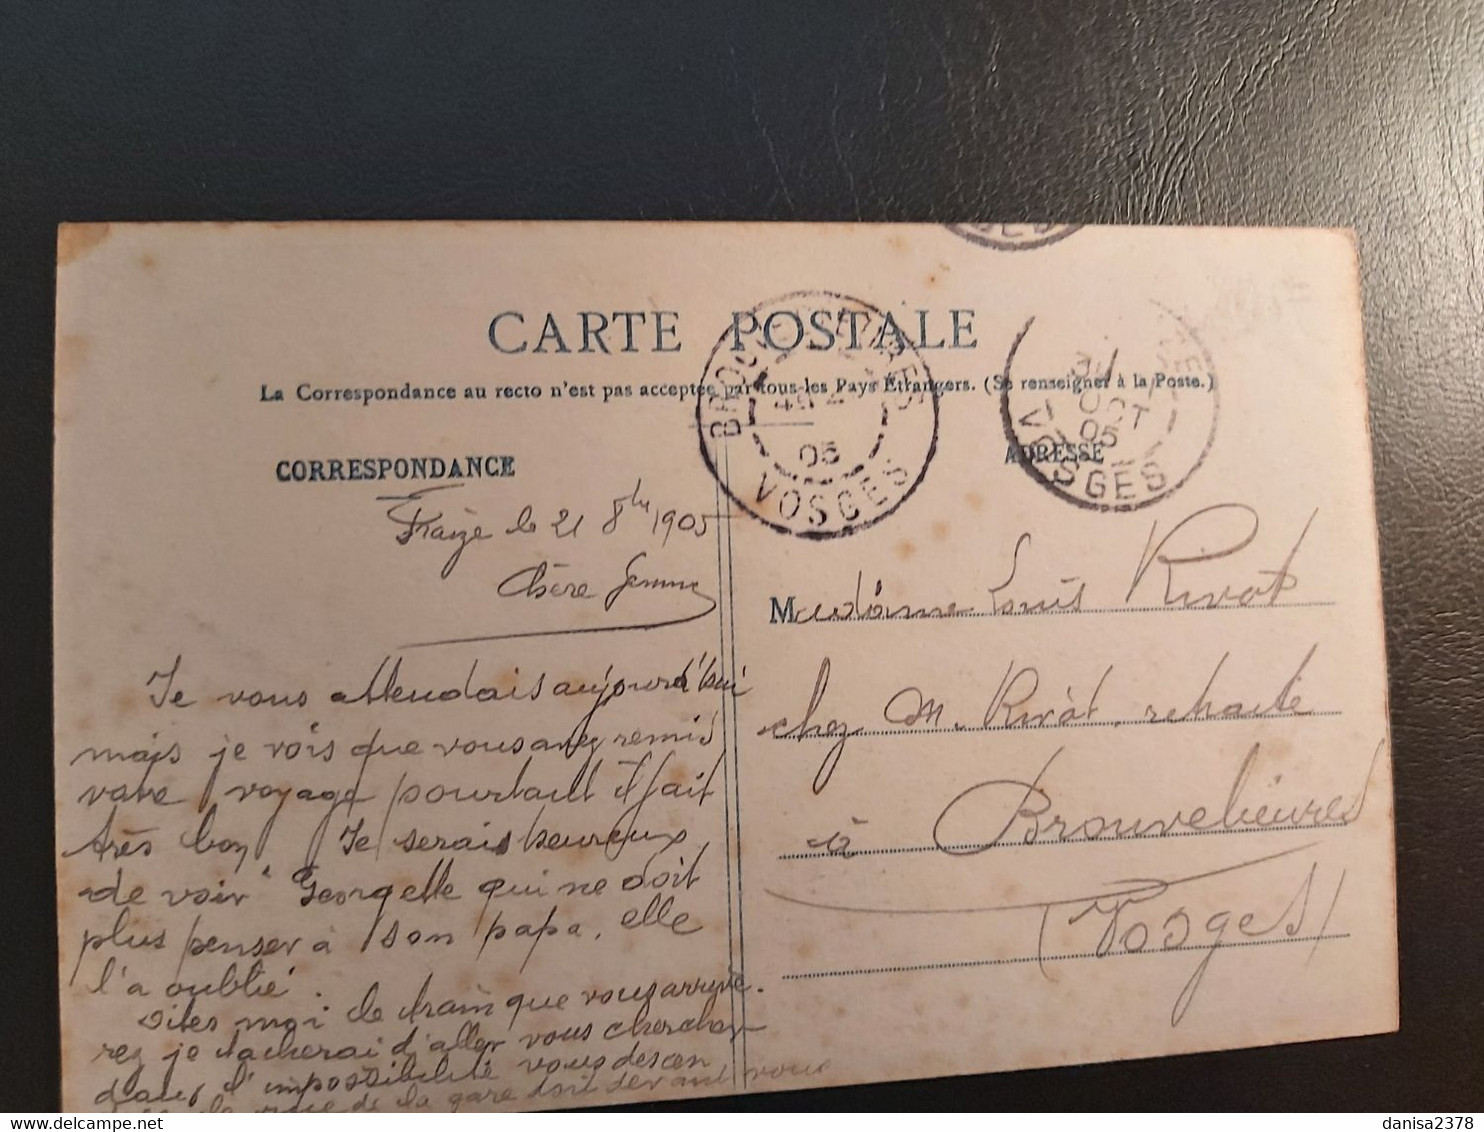 CARTE POSTALE
La Correspondance au recto n'est pas acceptée par tous les Pays Étrangers. (Se renseigner à la Poste.)
CORRESPONDANCE
ADRESSE
VOSGES
05
OCT
05
VOSGES
Fraize le 21 8bre 1905
Chère Femme
Je vous attendais aujourd'hui
mais je vois que vous avez remis
votre voyage pourtant il fait
très bon Je serais heureux
de voir Georgette qui ne doit
plus penser à son papa, elle
l'a oublié.
Dites moi le train que vous arrive-
rez je tacherai d'aller vous chercher
dans l'impossibilité vous descen
de la gare devant vous
Madame Louis Rivat
chez M. Rivat, retraité
à Brouvelieures
(Vosges)
danisa2378